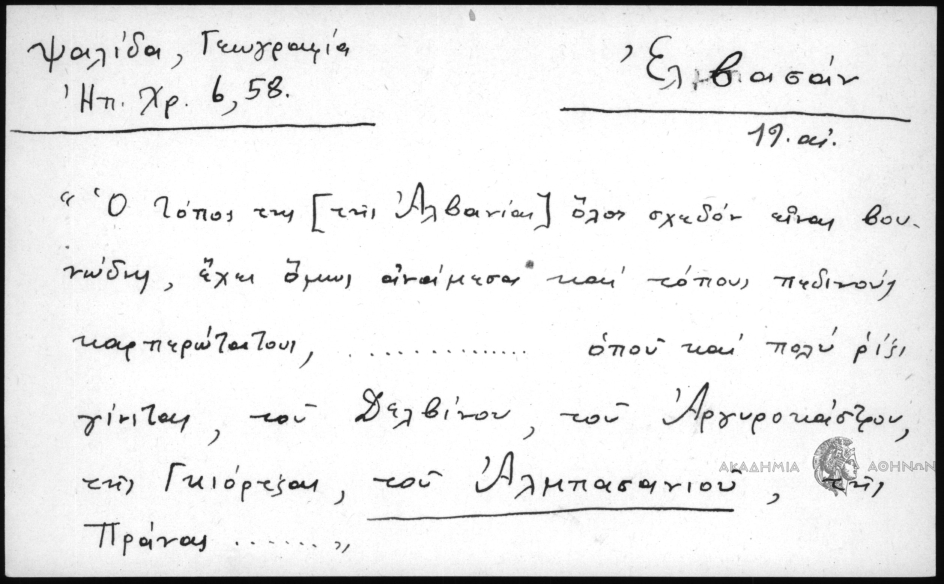 Ψαλίδα, Γεωγραφία
Ἠπ. Χρ. 6, 58.
Ἐλβασάν
19. αἰ.
"Ὁ τόπος της [τῆς Ἀλβανίας] ὅλος σχεδόν εἶναι βου-
νώδης, ἔχει ὅμως ἀνάμεσα καί τόπους πεδινούς
καρπερώτατους, .............. ὁποῦ καί πολύ ρίζι
γίνεται, τοῦ Δελβίνου, τοῦ Ἀργυροκάστρου,
τῆς Γκιόρτζας, τοῦ Ἀλμπασανιοῦ, τῆς
Πράνας ......."
ΑΚΑΔΗΜΙΑ ΑΘΗΝΩΝ